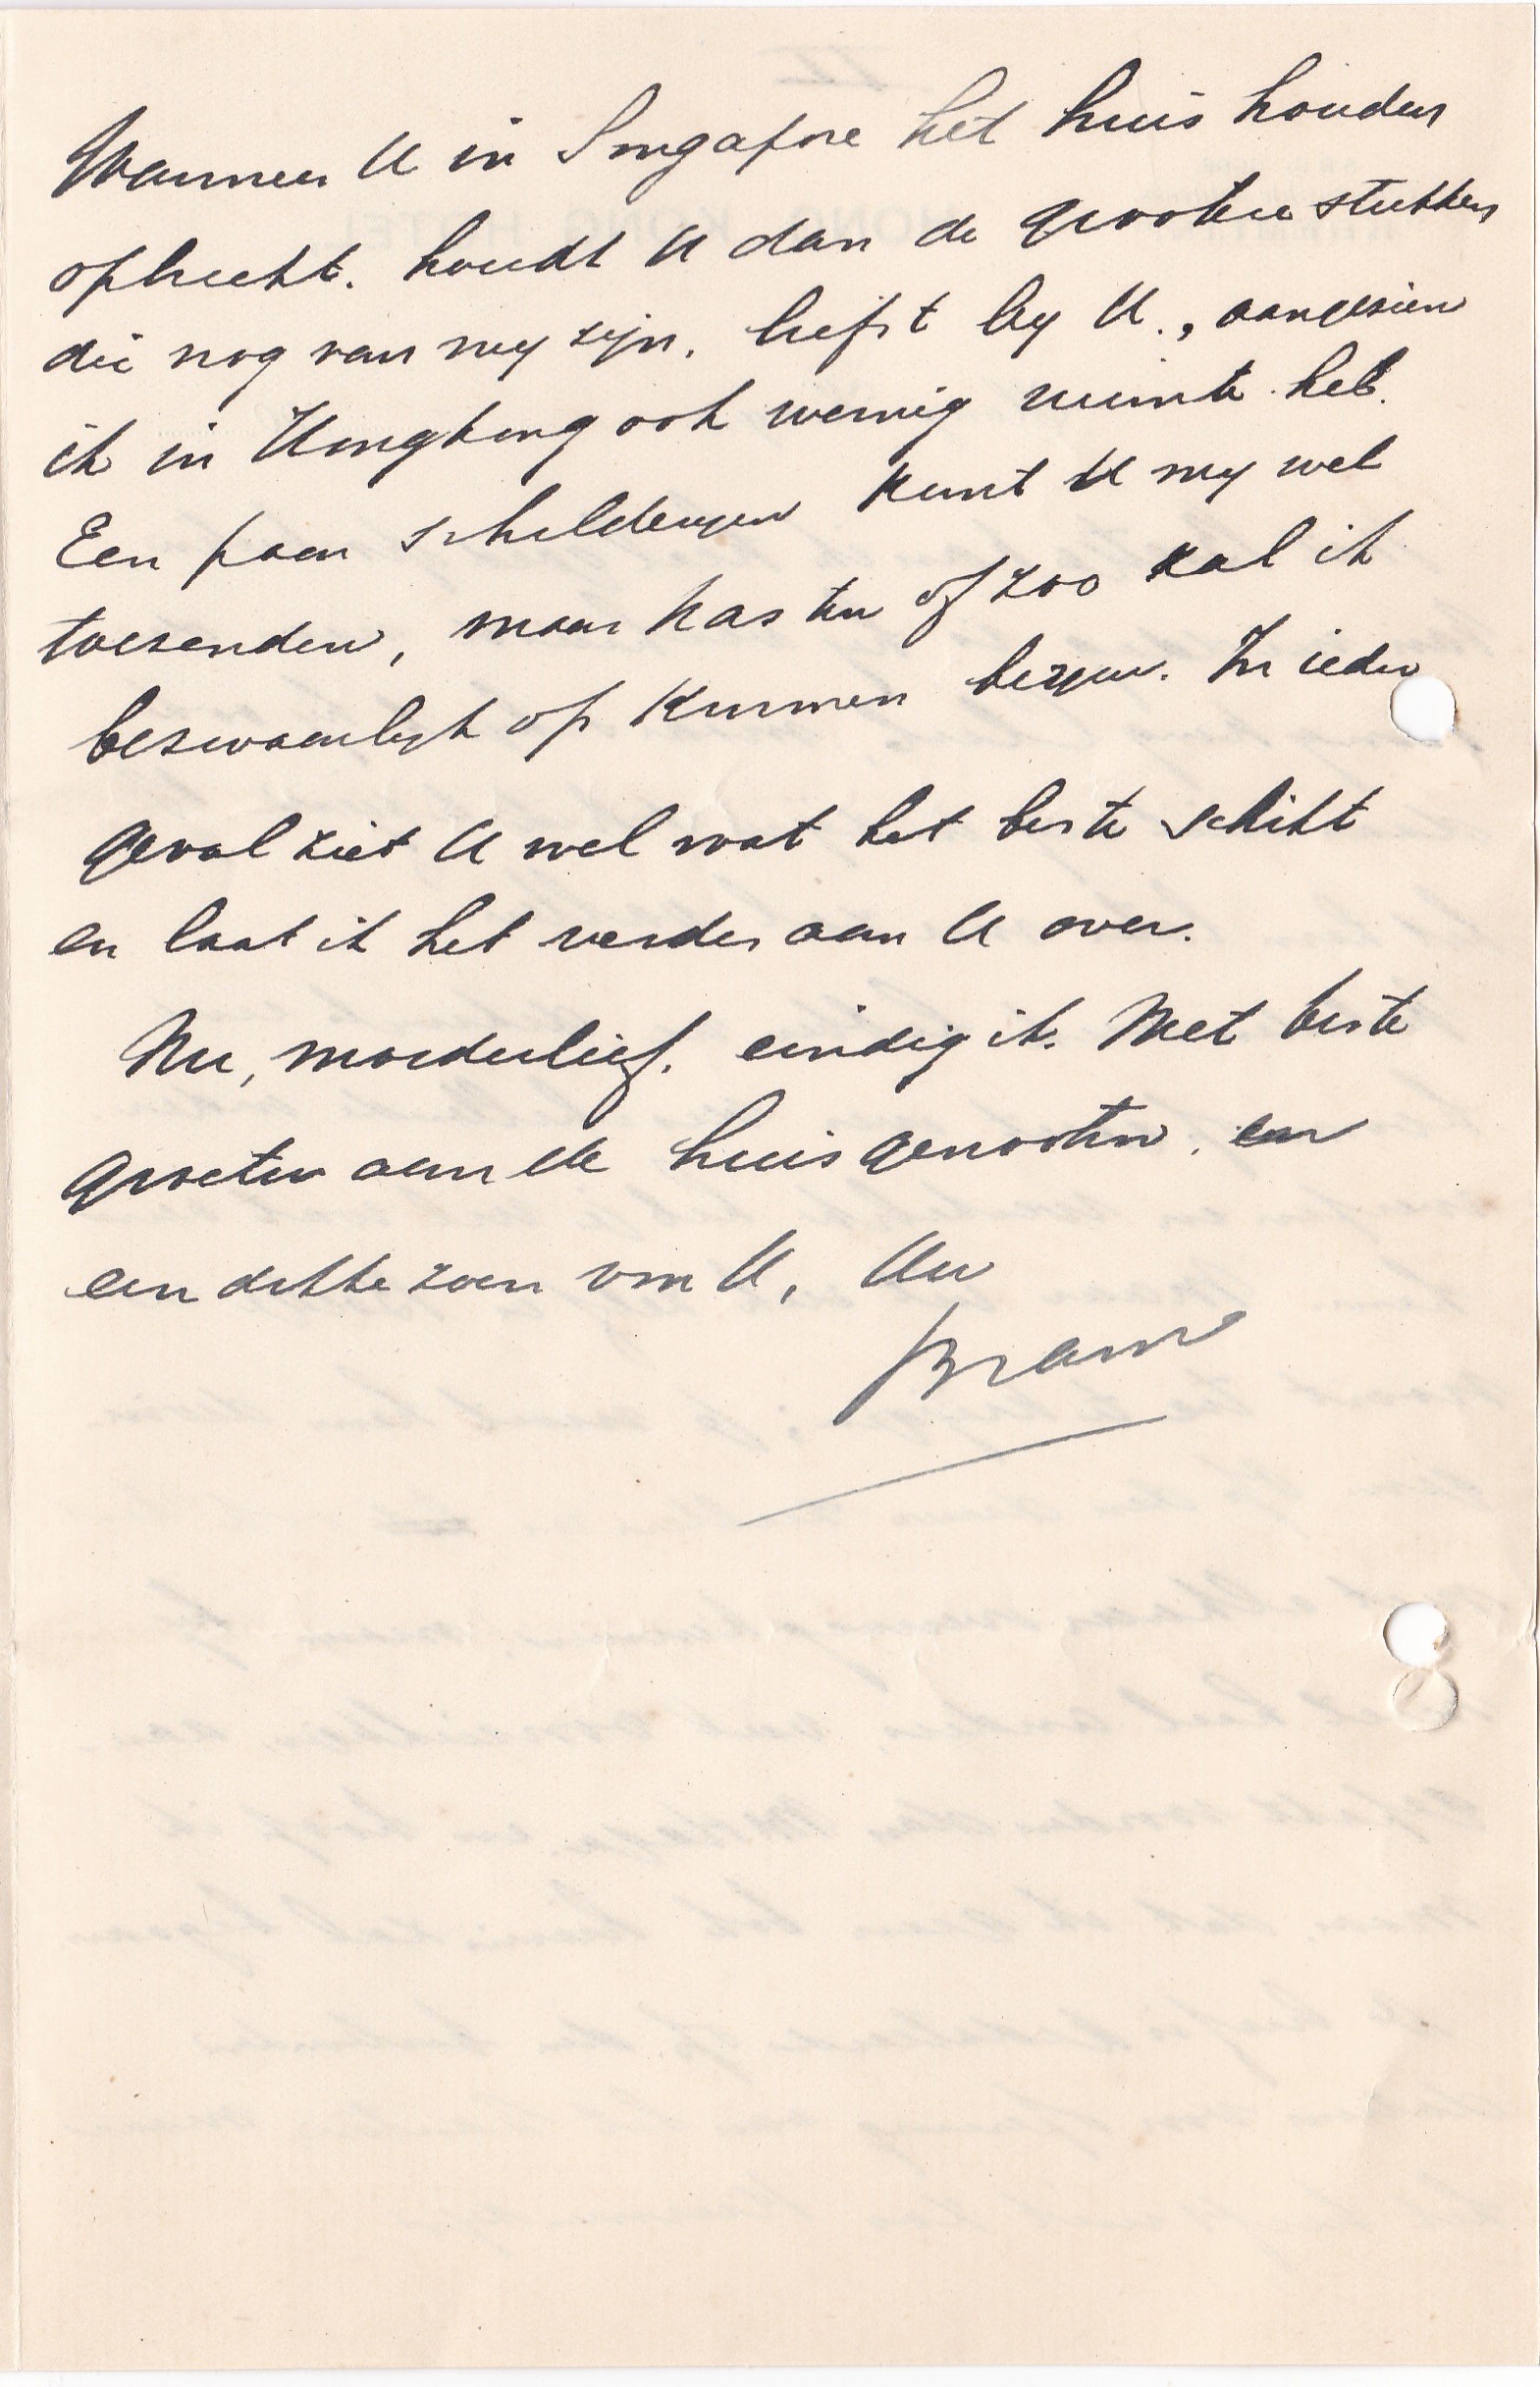 Wanneer U in Singapore het huishouden
opbreekt. houdt U dan de grootere stukken
die nog van my zyn, liefst by U., aangezien
ik in Hongkong ook weinig ruimte heb.
Een paar schilderyen kunt U my wel
toezenden, maar kasten of zoo zal ik
bezwaarlyk op kunnen bergen. In ieder
geval ziet U wel wat het beste schikt
en laat ik het verder aan U over.
Nu, moederlief, eindig ik. Met beste
groeten aan de huisgenooten, en
een dikke zoen van U, Uw
Bram